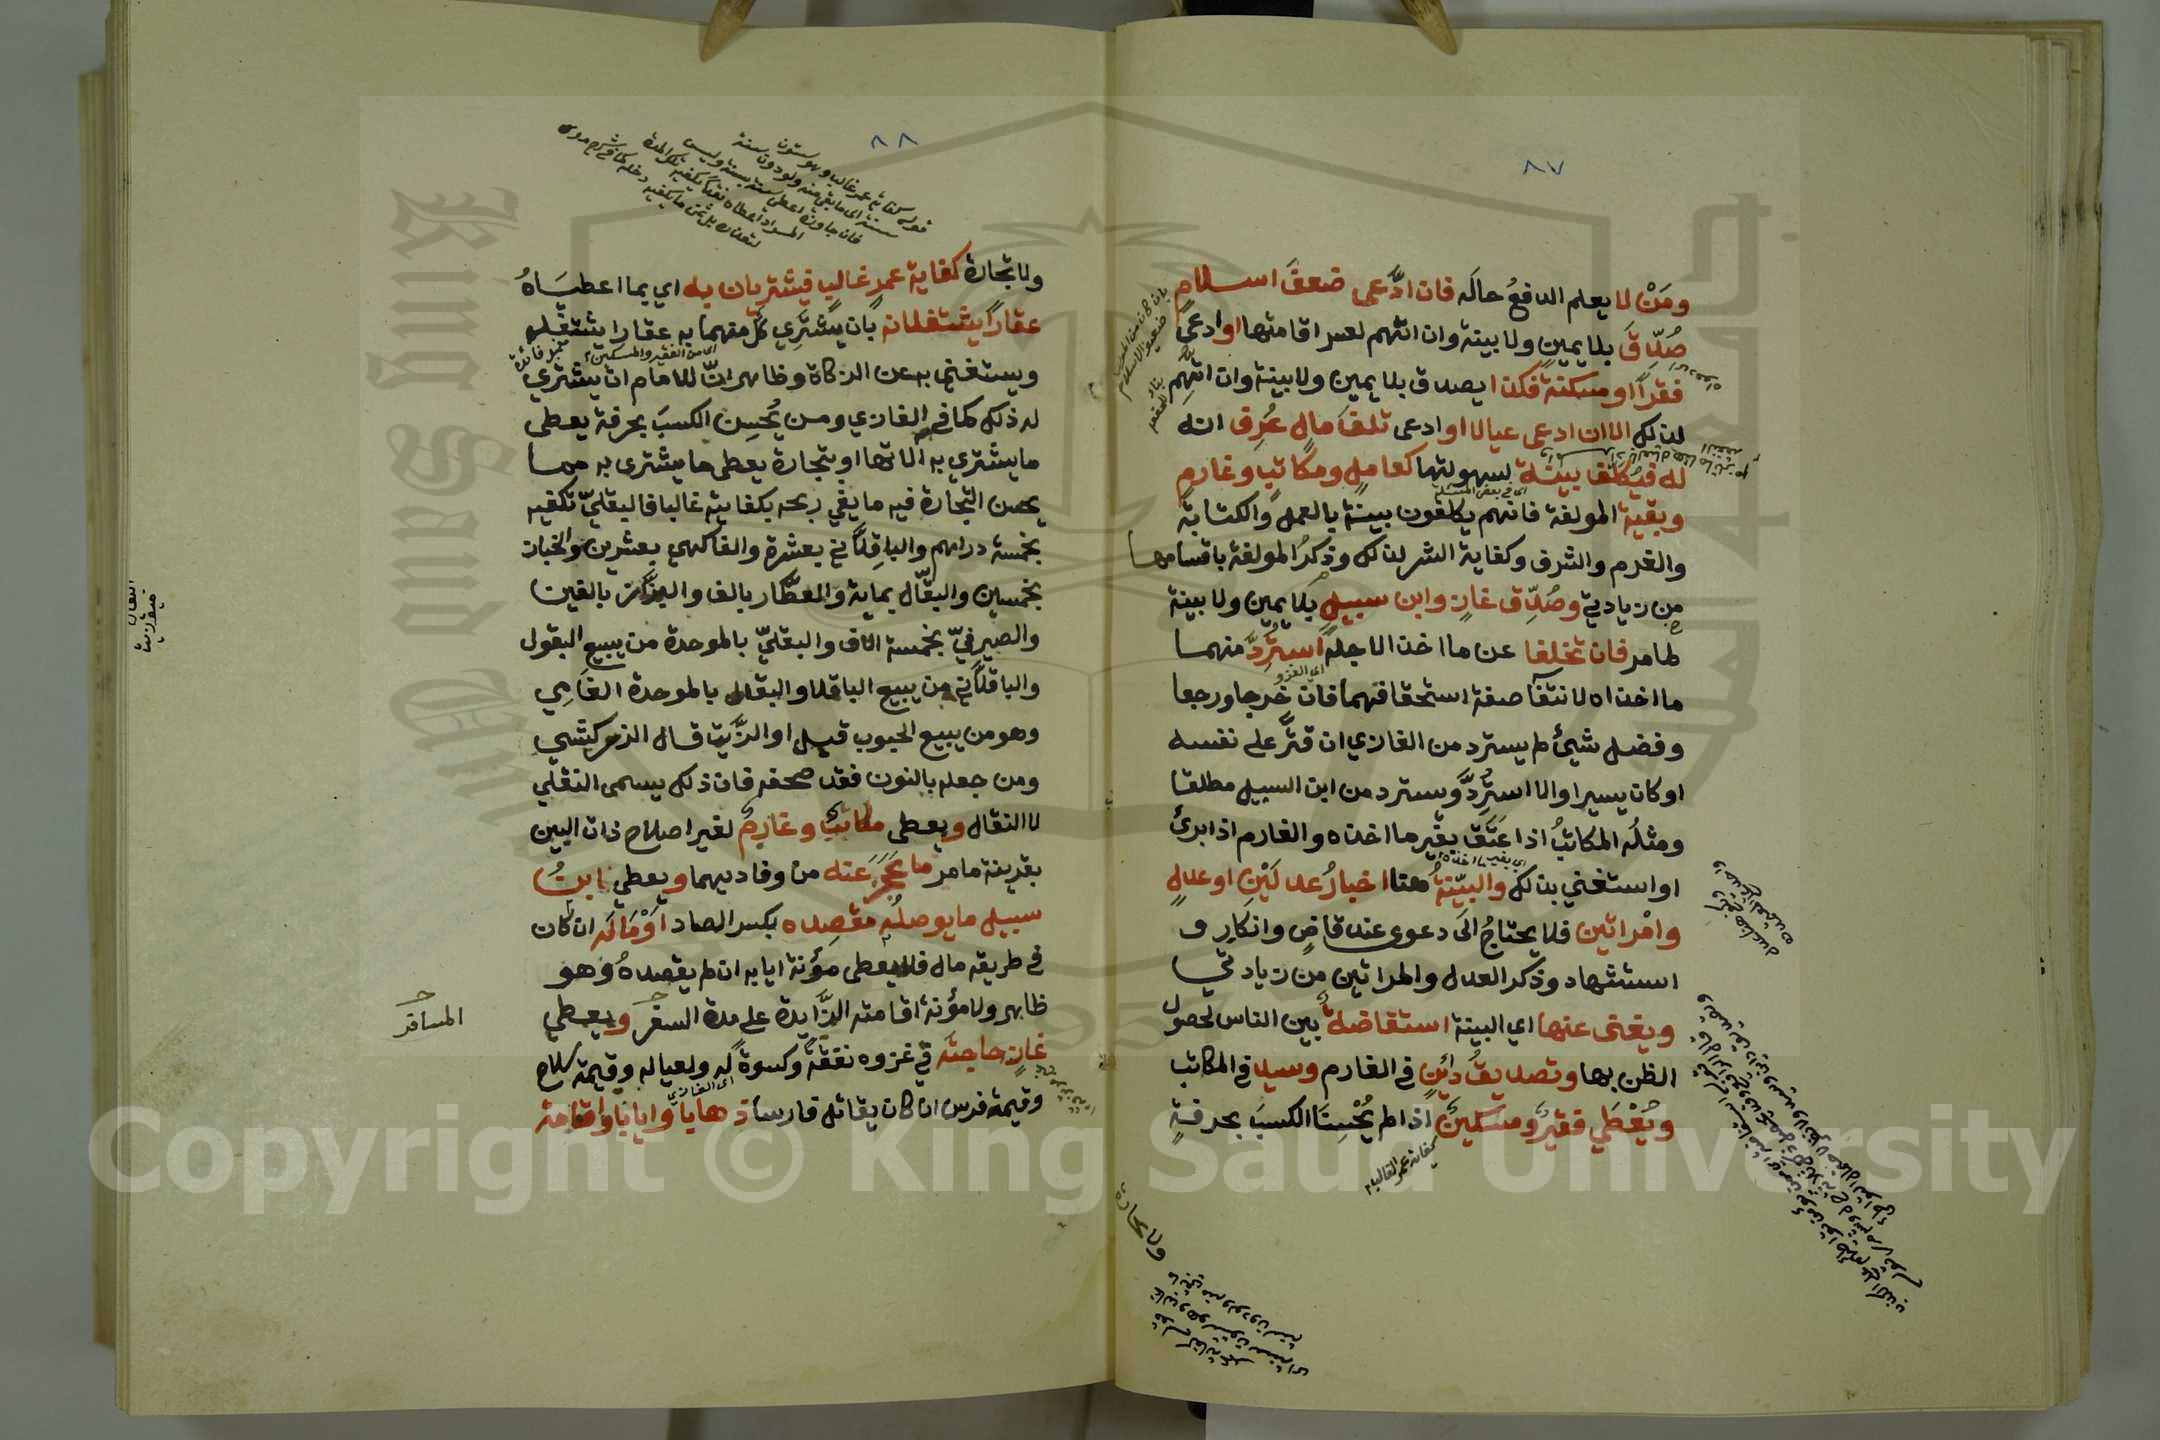 ٨٧
ومَنْ لا يعلم الدافعُ حالَه فان ادَّعى ضعفَ اسلام
صُدِّق بلا يمين ولا بينة وان اتهم لعسر اقامتها او ادعى
فقرًا او مسكنةً فكذا يصدق بلا يمين ولا بينة وان اتهم
لذلك الا ان ادعى عيالا او ادعى تلفَ مالٍ عُرِف انه
له فيُكلَّف بينة لسهولتها كعاملٍ ومكاتبٍ وغارمٍ
وبقية المولفة فانهم يكلفون بينة بالعمل والكتابة
والغرم والشرف وكفاية الشر لذلك وذكرُ المولفة باقسامها
من زيادتي وصُدِّق غازٍ وابن سبيلٍ بلا يمين ولا بينة
لما مر فان تخلفا عن ما اخذا لاجله استُرِدَّ منهما
ما اخذاه لانتفآ صفة استحقاقهما فان خرجا ورجعا
وفضل شيئ لم يسترد من الغازي ان قتَّر على نفسه
او كان يسيرا والا استُرِدَّ ويسترد من ابن السبيل مطلقا
ومثلُه المكاتبُ اذا عَتَق بغير ما اخذه والغارم اذا برئ
او استغني بذلك والبيّنةُ هنا اخبارُ عدلَيْنِ او عدلٍ
وامْراتين فلا يحتاجُ الى دعوى عند قاضٍ وانكارٍ و
استشهاد وذكر العدل والمراتين من زيادتي
ويغنى عنها اي البينة استفاضةٌ بين الناس لحصول
الظن بها وتصديقُ دائنٍ في الغارم وسيدٍ في المكاتب
ويُعْطَي فقيرٌ ومسكينٌ اذا لم يُحْسِنَا الكسبَ بحرفةٍ
كفاية عمر الغالب
ولا تجارة
٨٨
قوله كفاية عمر غالب وهو ستون
سنة اي ما بقي منه ولو دون سنة
فان جاوزه اعطي سنة بسنة وليس
المراد اعطاه نقدا يكفيه تلك المدة
ولا تجارة كفاية عمرٍ غالبٍ فيشتريان به اي بما اعطيَاهُ
عقارًا يستغلانه بان يشتري كل منهما به عقارا يستغله
ويستغني به عن الزكاة وظاهر انّ للامام ان يشتري
له ذلك كما في الغازي ومن يُحسِن الكسبَ بحرفة يعطى
ما يشتري به آلاتها او بتجارة يعطى ما يشترى به مما
يحسن التجارة فيه ما يفي ربحه بكفايته غالبا فالبقليّ تكفيه
خمسة دراهم والباقِلّاني بعشرة والفاكهي بعشرين والخباز
بخمسين والبقّال بماية والعطّار بالف والبزّاز بالفين
والصيرفيّ بخمسة الاف والبقليّ بالموحدة من يبيع البقول
والباقلّاني من يبيع الباقلا والبقال بالموحدة الفامي
وهو من يبيع الحبوب قيل او الزَّيت قال الزركشي
ومن جعله بالنون فقد صحفه فان ذلك يسمى النقلي
لا النقال ويعطى مكاتبٌ وغارمٌ لغير اصلاح ذات البين
بقرينة ما مر ما عَجَزَ عَنه من وفا دينهما ويعطي ابنُ
سبيل ما يوصلُه مقصِده بكسر الصاد اوْ مَالَه ان كان
في طريقه مال فلا يعطى مؤنة ايابه ان لم يقصدهُ وهو
ظاهر ولا مؤنة اقامته الزَّايدة على مدة السفر ويعطي
المسافر
غازٍ حاجتَه في غزوه نفقةً وكسوةً له ولعياله وقيمة سلاح
وقيمة فرس ان كان يقاتل فارسا ذهابا وايابا واقامة
Copyright © King Saud University